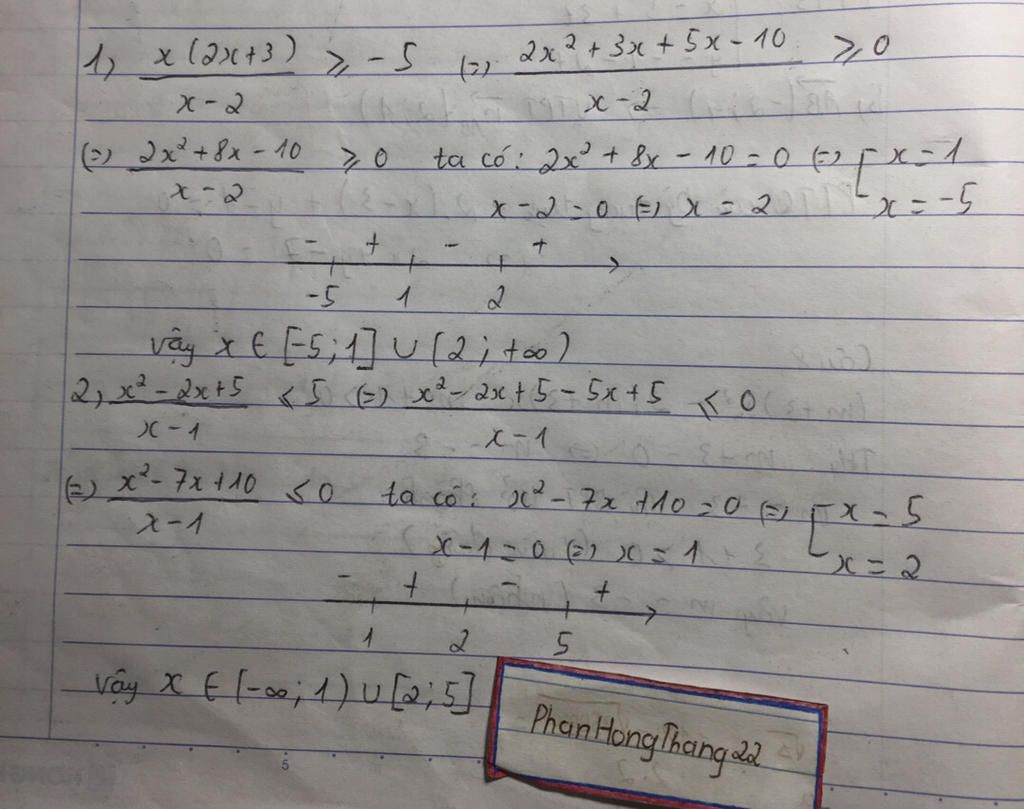 1, x(2x+3)/(x-2) ≥ -5 (=) (2x² + 3x + 5x - 10)/(x-2) ≥ 0
(=) (2x² + 8x - 10)/(x-2) ≥ 0 ta có: 2x² + 8x - 10 = 0 (=) [ x = 1
x - 2 = 0 (=) x = 2 x = -5
- + - +
-5 1 2
vậy x ∈ [-5; 1] ∪ (2; +∞)
2, (x² - 2x + 5)/(x-1) ≤ 5 (=) (x² - 2x + 5 - 5x + 5)/(x-1) ≤ 0
(=) (x² - 7x + 10)/(x-1) ≤ 0 ta có: x² - 7x + 10 = 0 (=) [ x = 5
x - 1 = 0 (=) x = 1 x = 2
- + - +
1 2 5
vậy x ∈ (-∞; 1) ∪ [2; 5]
PhanHongThang22
5